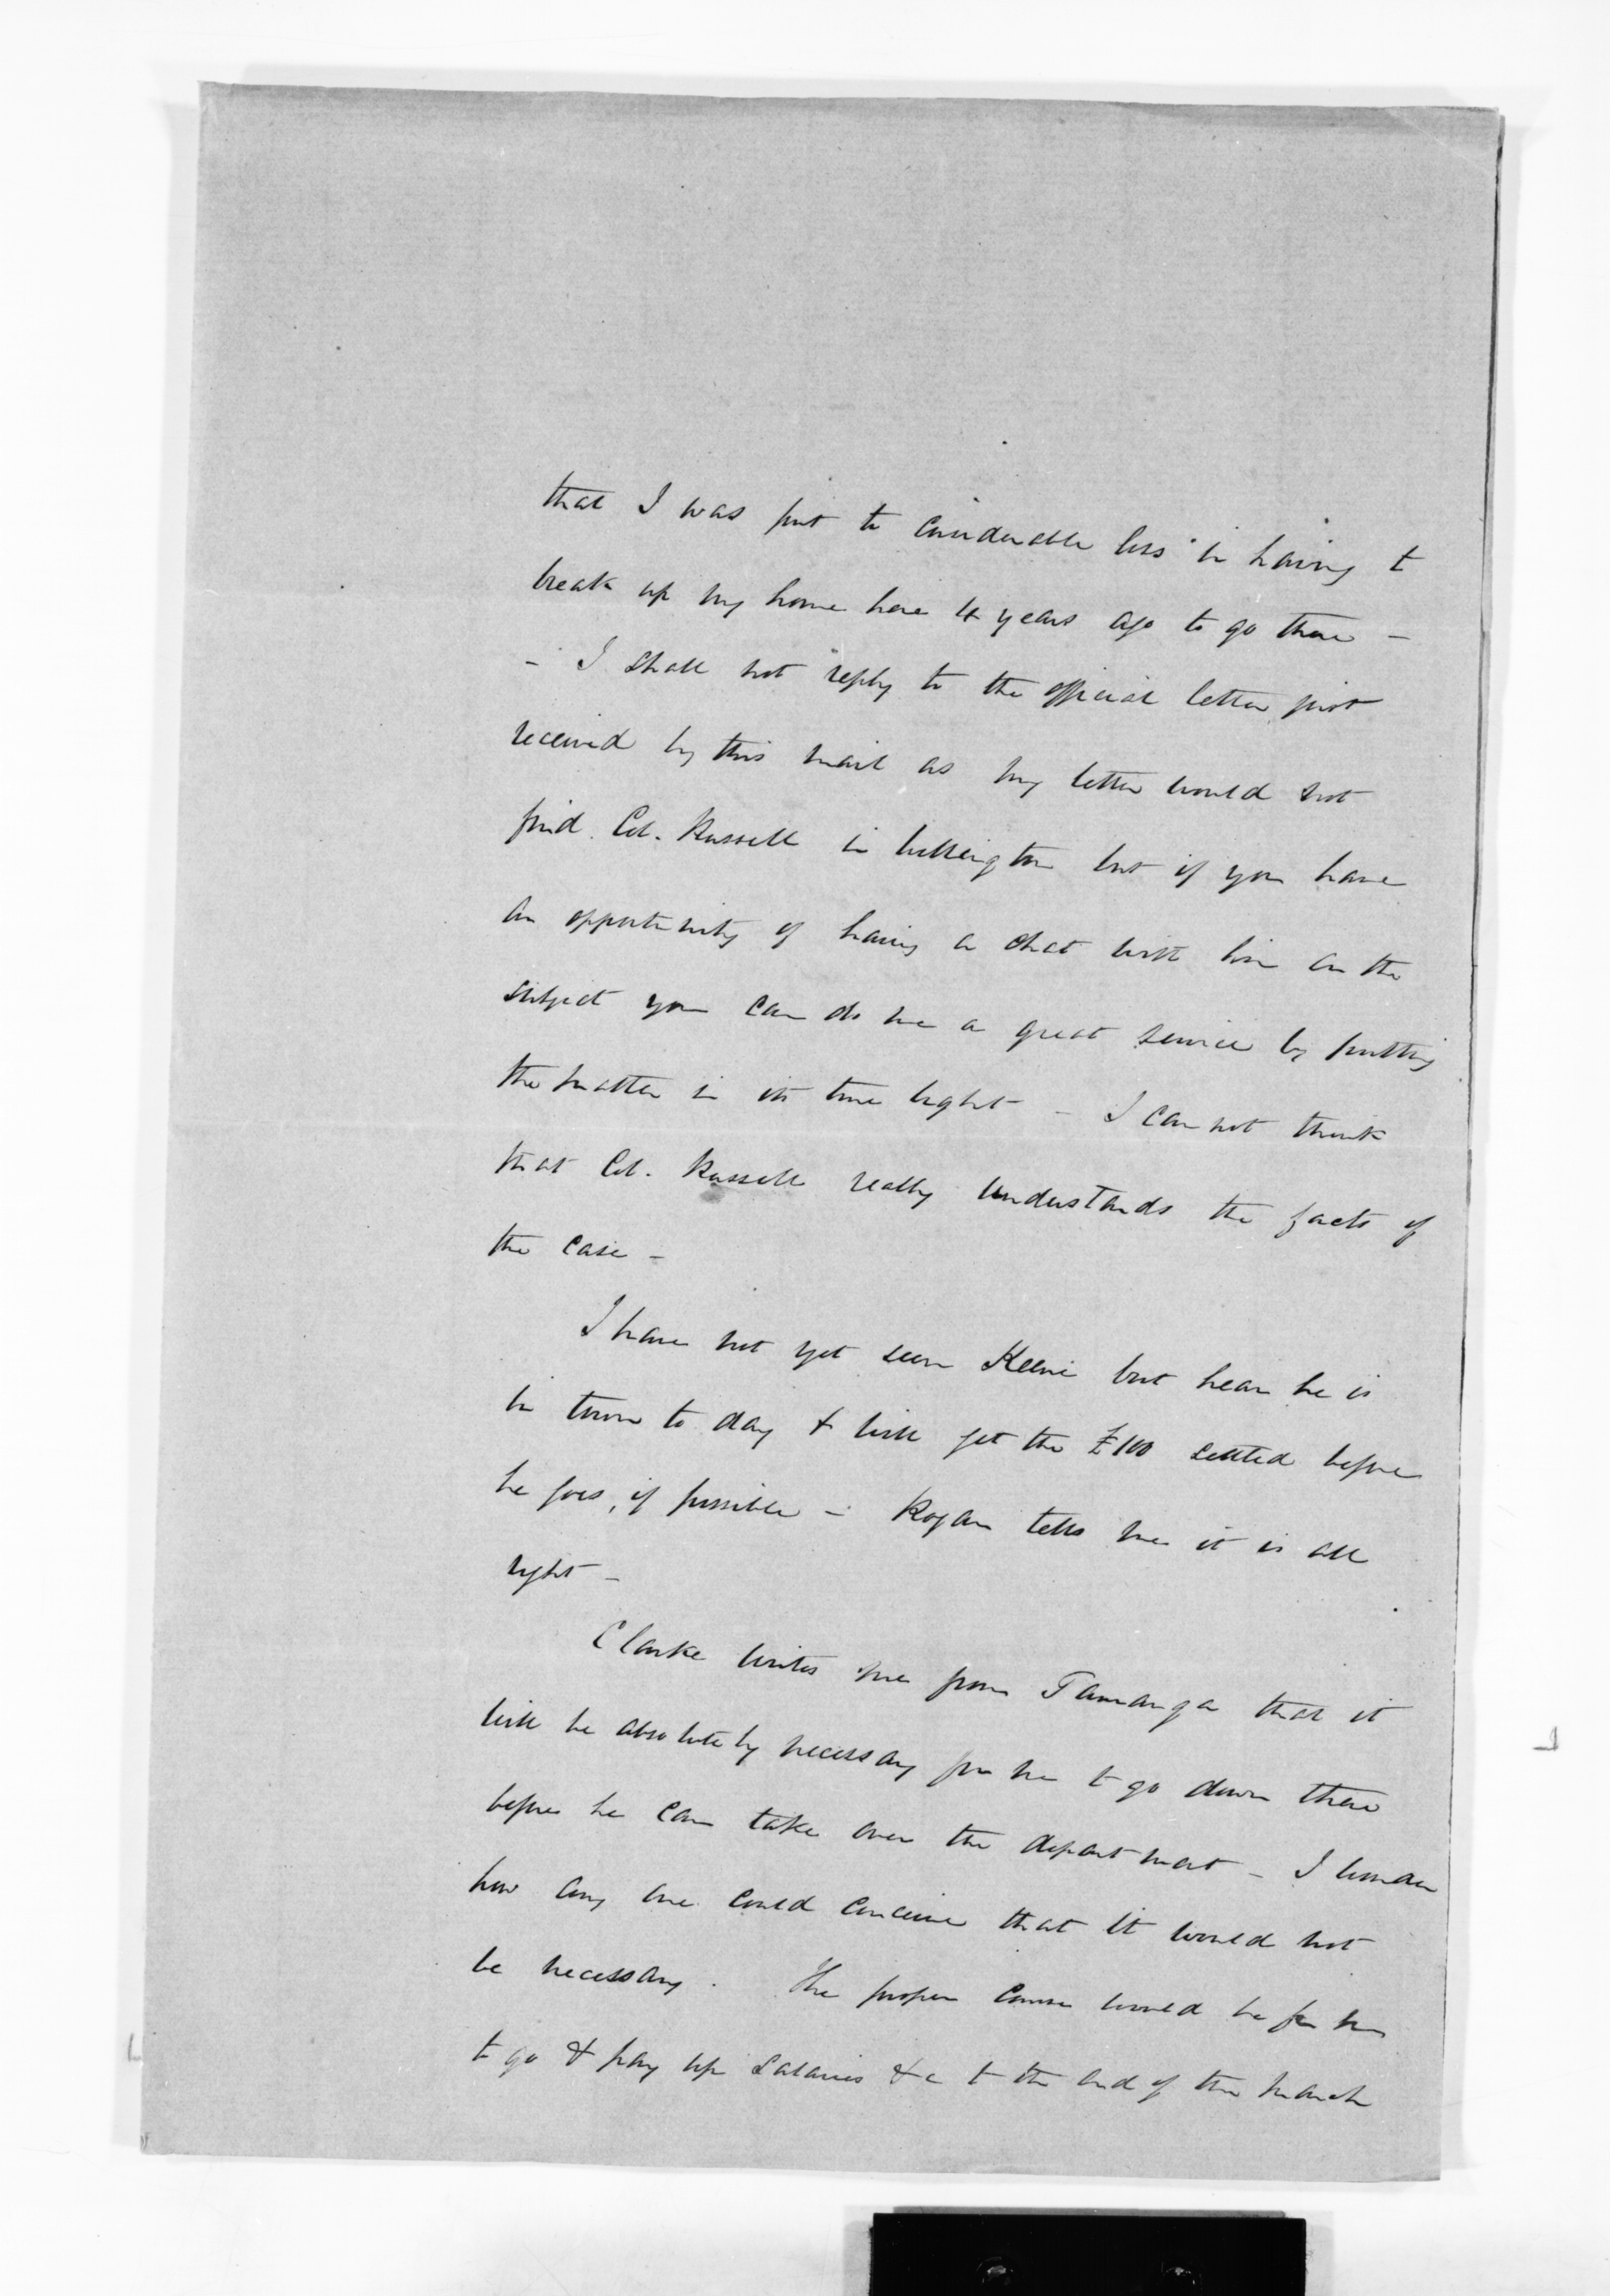 that I was put to considerable loss in having to
break up my home here 4 years ago to go there -
- I shall not reply to the official letter just
received by this mail as my letter would not
find Col. Russell in Wellington but if you have
an opportunity of having a chat with him on the
subject you can do me a great service by putting
the matter in its true light - I can not think
that Col. Russell really understands the facts of
the case -
I have not yet seen Keene but hear he is
in town to day & will get the £100 settled before
he goes, if possible - Rogan tells me it is all
right -
Clarke writes me from Tauranga that it
will be absolutely necessary for me to go down there
before he can take over the department - I wonder
how any one could conceive that it would not
be necessary. The proper course would be for me
to go & pay up salaries &c to the end of the March